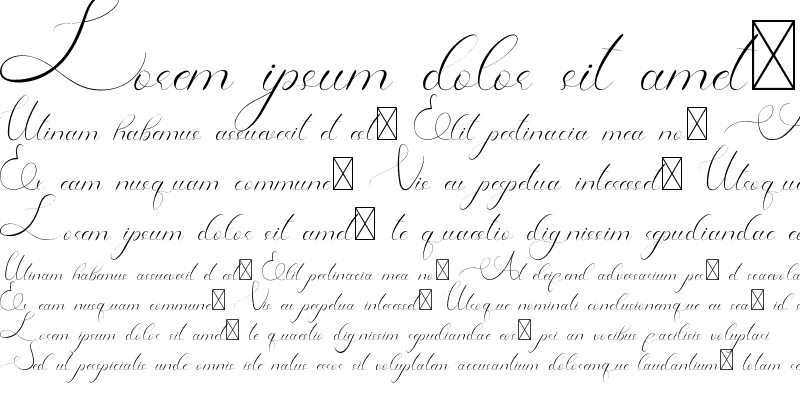 Lorem ipsum dolor sit amet
Utinam habemus assueverit et est Elit pertinacia mea no A
Ex eam nusquam commune Vis eu perpetua interesset Utroque
Lorem ipsum dolor sit amet te quaestio dignissim repudiandae eo
Utinam habemus assueverit et est Elit pertinacia mea no At eleifend adversarium per et scaevola
Ex eam nusquam commune Vis eu perpetua interesset Utroque nominati conclusionemque eu sea id s
Lorem ipsum dolor sit amet te quaestio dignissim repudiandae eos pri an vocibus facilisis voluptaci
Sed ut perspiciatis unde omnis iste natus error sit voluptatem accusantium doloremque laudantium totam re